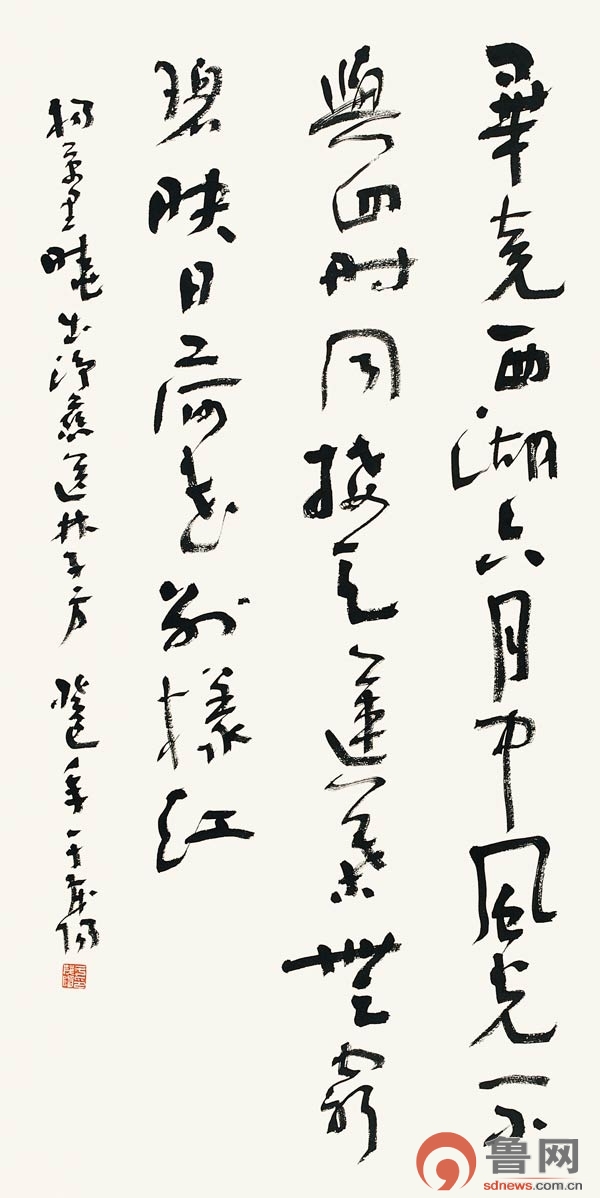 畢竟西湖六月中風光不
與四時同接天蓮葉無窮
碧映日荷花別樣紅
楊萬里曉出淨慈送林子方 癸巳年于茂陽
鲁网
sdnews.com.cn